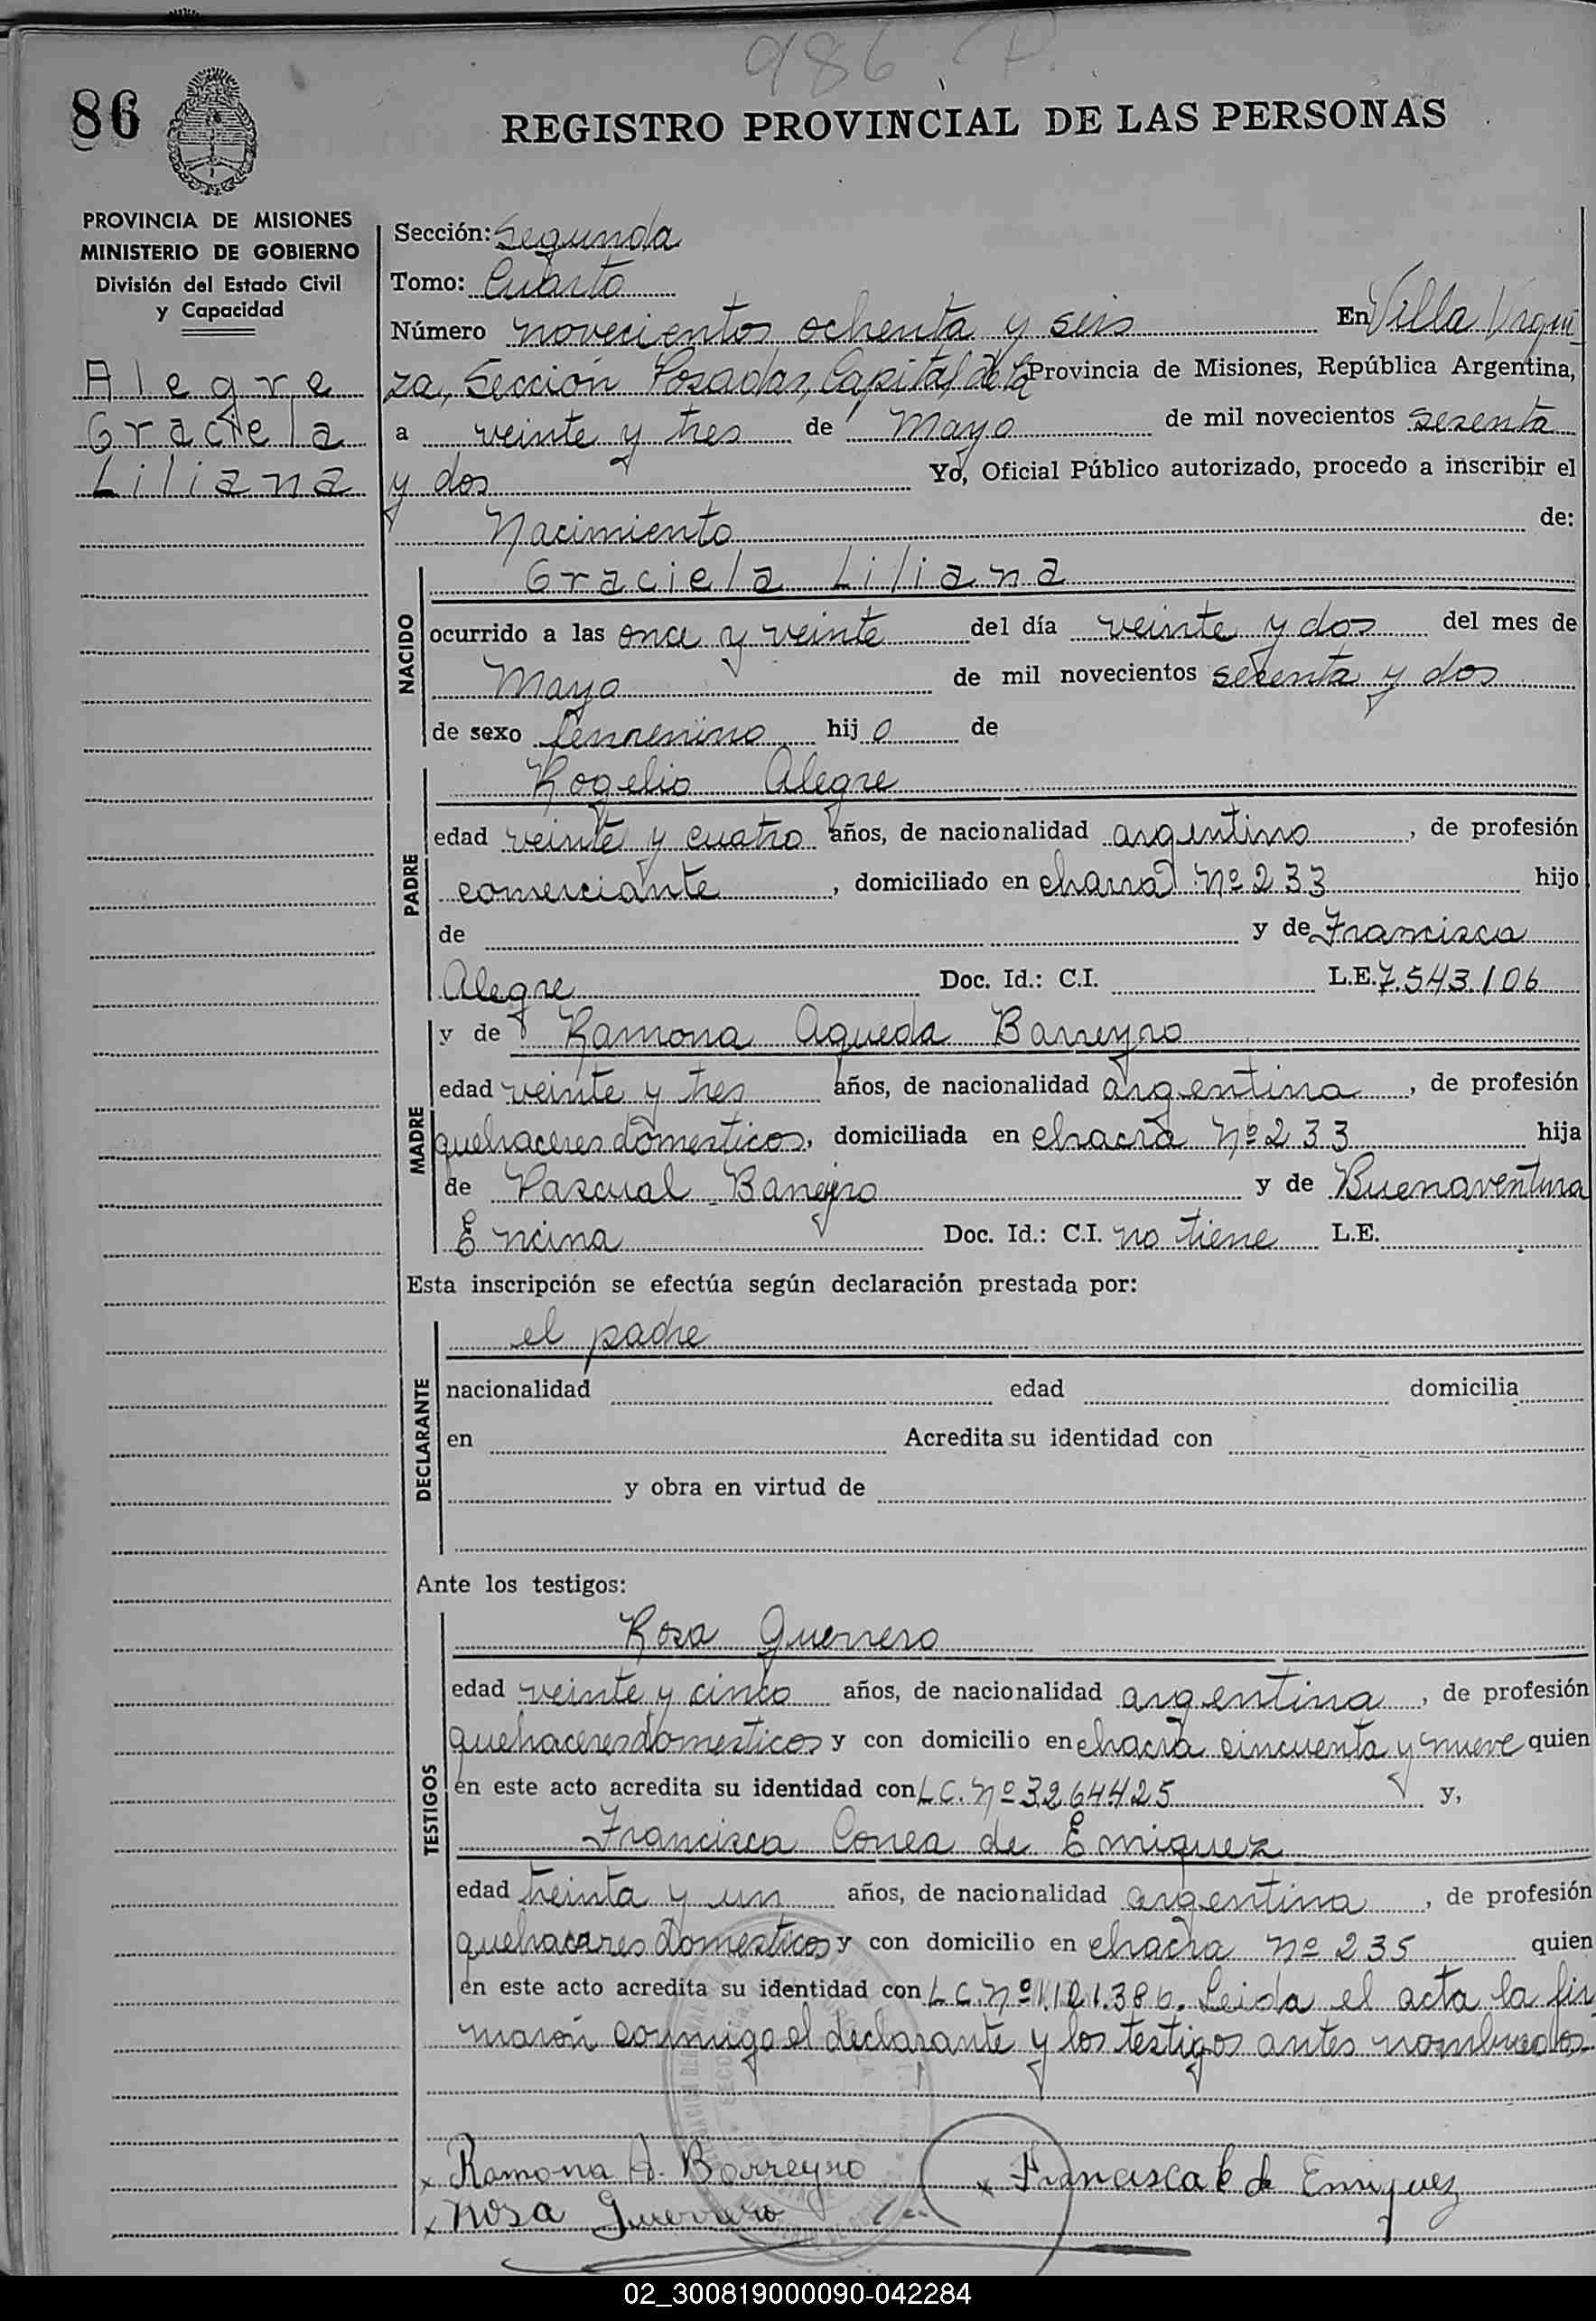 986 P.
86
REGISTRO PROVINCIAL DE LAS PERSONAS
PROVINCIA DE MISIONES
MINISTERIO DE GOBIERNO
División del Estado Civil
y Capacidad
Alegre
Graciela
Liliana
Sección: Segunda
Tomo: Cuarto
Número novecientos ochenta y seis En Villa Urqui
za, Sección Posadas, Capital de la Provincia de Misiones, República Argentina,
a veinte y tres de Mayo de mil novecientos sesenta
y dos Yo, Oficial Público autorizado, procedo a inscribir el
Nacimiento de:
NACIDO
Graciela Liliana
ocurrido a las once y veinte del día veinte y dos del mes de
Mayo de mil novecientos sesenta y dos
de sexo femenino hij o de
PADRE
Rogelio Alegre
edad veinte y cuatro años, de nacionalidad argentino, de profesión
comerciante, domiciliado en chacra Nº 233 hijo
de y de Francisca
Alegre Doc. Id.: C.I. L.E. 7.543.106
MADRE
y de Ramona Agueda Barreyro
edad veinte y tres años, de nacionalidad argentina, de profesión
quehaceres domesticos, domiciliada en chacra Nº 233 hija
de Pascual Barreyro y de Buenaventura
Encina Doc. Id.: C.I. no tiene L.E.
Esta inscripción se efectúa según declaración prestada por:
DECLARANTE
el padre
nacionalidad edad domicilia
en Acredita su identidad con
y obra en virtud de
Ante los testigos:
TESTIGOS
Rosa Guerrero
edad veinte y cinco años, de nacionalidad argentina, de profesión
quehaceres domesticos y con domicilio en chacra cincuenta y nueve quien
en este acto acredita su identidad con L.C. Nº 3264425 y,
Francisca Correa de Enriquez
edad treinta y un años, de nacionalidad argentina, de profesión
quehaceres domesticos y con domicilio en chacra Nº 235 quien
en este acto acredita su identidad con L.C. Nº Leida el acta la fir
maron conmigo el declarante y los testigos antes nombrados
x Ramona A. Barreyro x Francisca C de Enriquez
x Rosa Guerrero
02_300819000090-042284